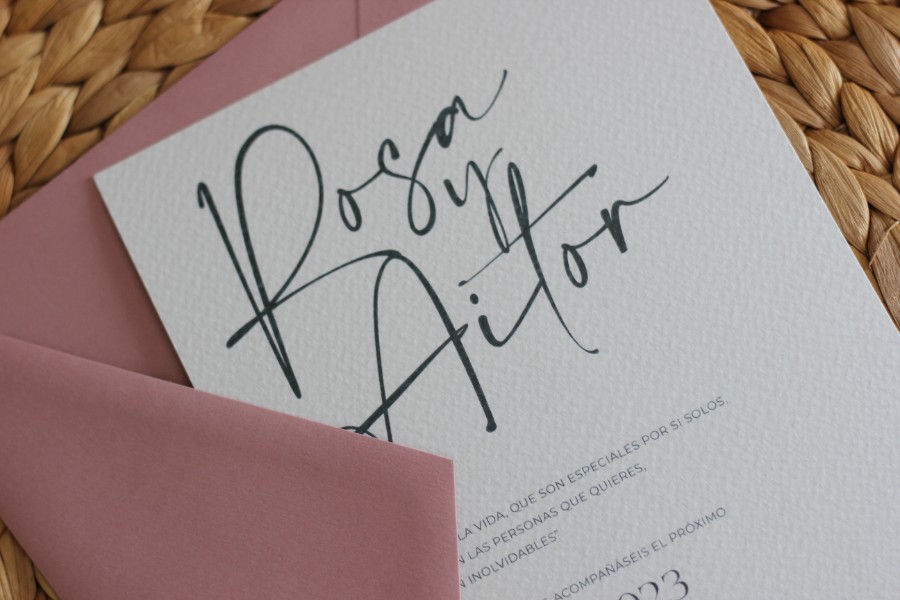 Rosa
y
Aitor
LA VIDA, QUE SON ESPECIALES POR SI SOLOS.
LAS PERSONAS QUE QUIERES,
INOLVIDABLES"
ACOMPAÑÁSEIS EL PRÓXIMO